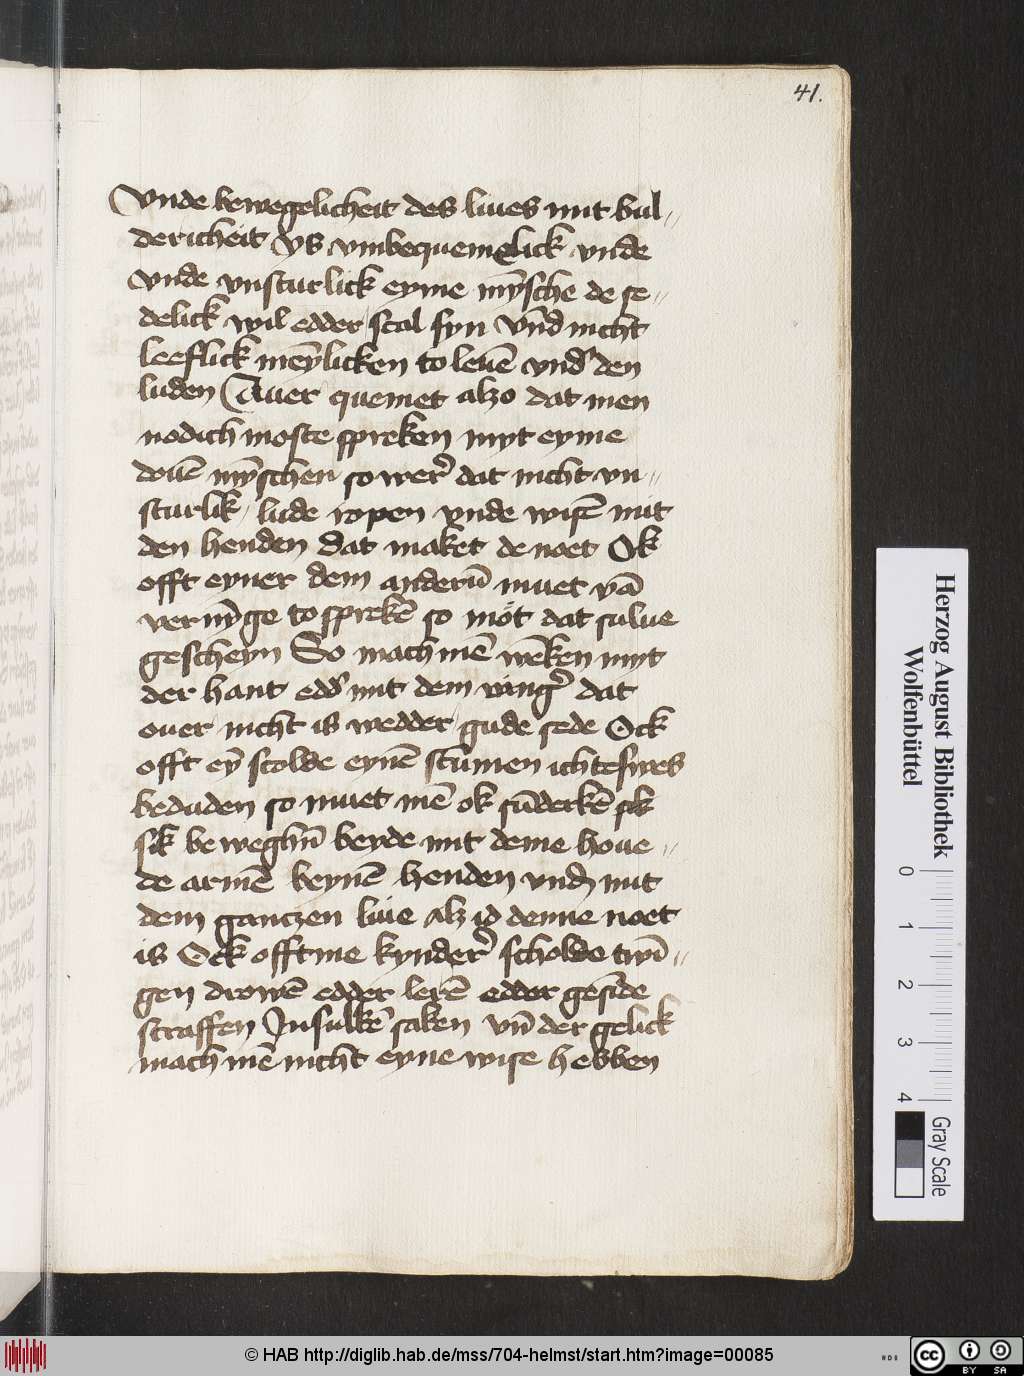 41.
Vnde bewegelicheit des liues mit bul-
dericheit ys vmbequemelick vnde
vnde vnsturlick eyme mȳsche de se-
delick wil edder scal syn vn̄d nicht
leeflick mēylicken to leuē vnd' den
luden Auer quemet alzo dat men
nodich moste spreken myt eyme
douē mȳschen so wer' dat nicht vn-
sturlik lude ropen vnde wisē mit
den henden dat maket de noet Ok
offt eyner dem anderū muet vā
vernȳge to sprekē so mot dat sulue
gescheyn So mach mē wēken myt
der hant edd' mit dem ving' dat
ouer nicht is wedder gude sede Ock
offt eȳ scolde eynē stūmen ichteswes
beduden so muet mē ok sūderkē sik
sik beweghīn beyde mit deme houe-
de armē beynē henden vnd mit
dem gantzen liue alz id denne noet
is Ock offtme kynder' scholde twī-
gen drowē edder lerē edder gesīde
straffen Jn sulkē saken vn̄ der gelick
mach mē nicht eyne wise hebben
Herzog August Bibliothek
Wolfenbüttel
0 1 2 3 4
Gray Scale
© HAB http://diglib.hab.de/mss/704-helmst/start.htm?image=00085
cc BY SA